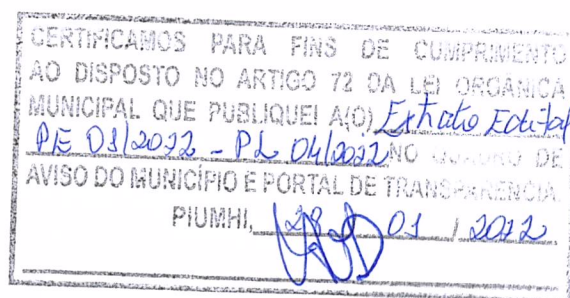 CERTIFICAMOS PARA FINS DE CUMPRIMENTO
AO DISPOSTO NO ARTIGO 72 DA LEI ORGÂNICA
MUNICIPAL QUE PUBLIQUEI A(O) Extrato Edital
PE 01/2022 - PL 04/2022 NO QUADRO DE
AVISO DO MUNICÍPIO E PORTAL DE TRANSPARENCIA.
PIUMHI, 28 01 / 2022